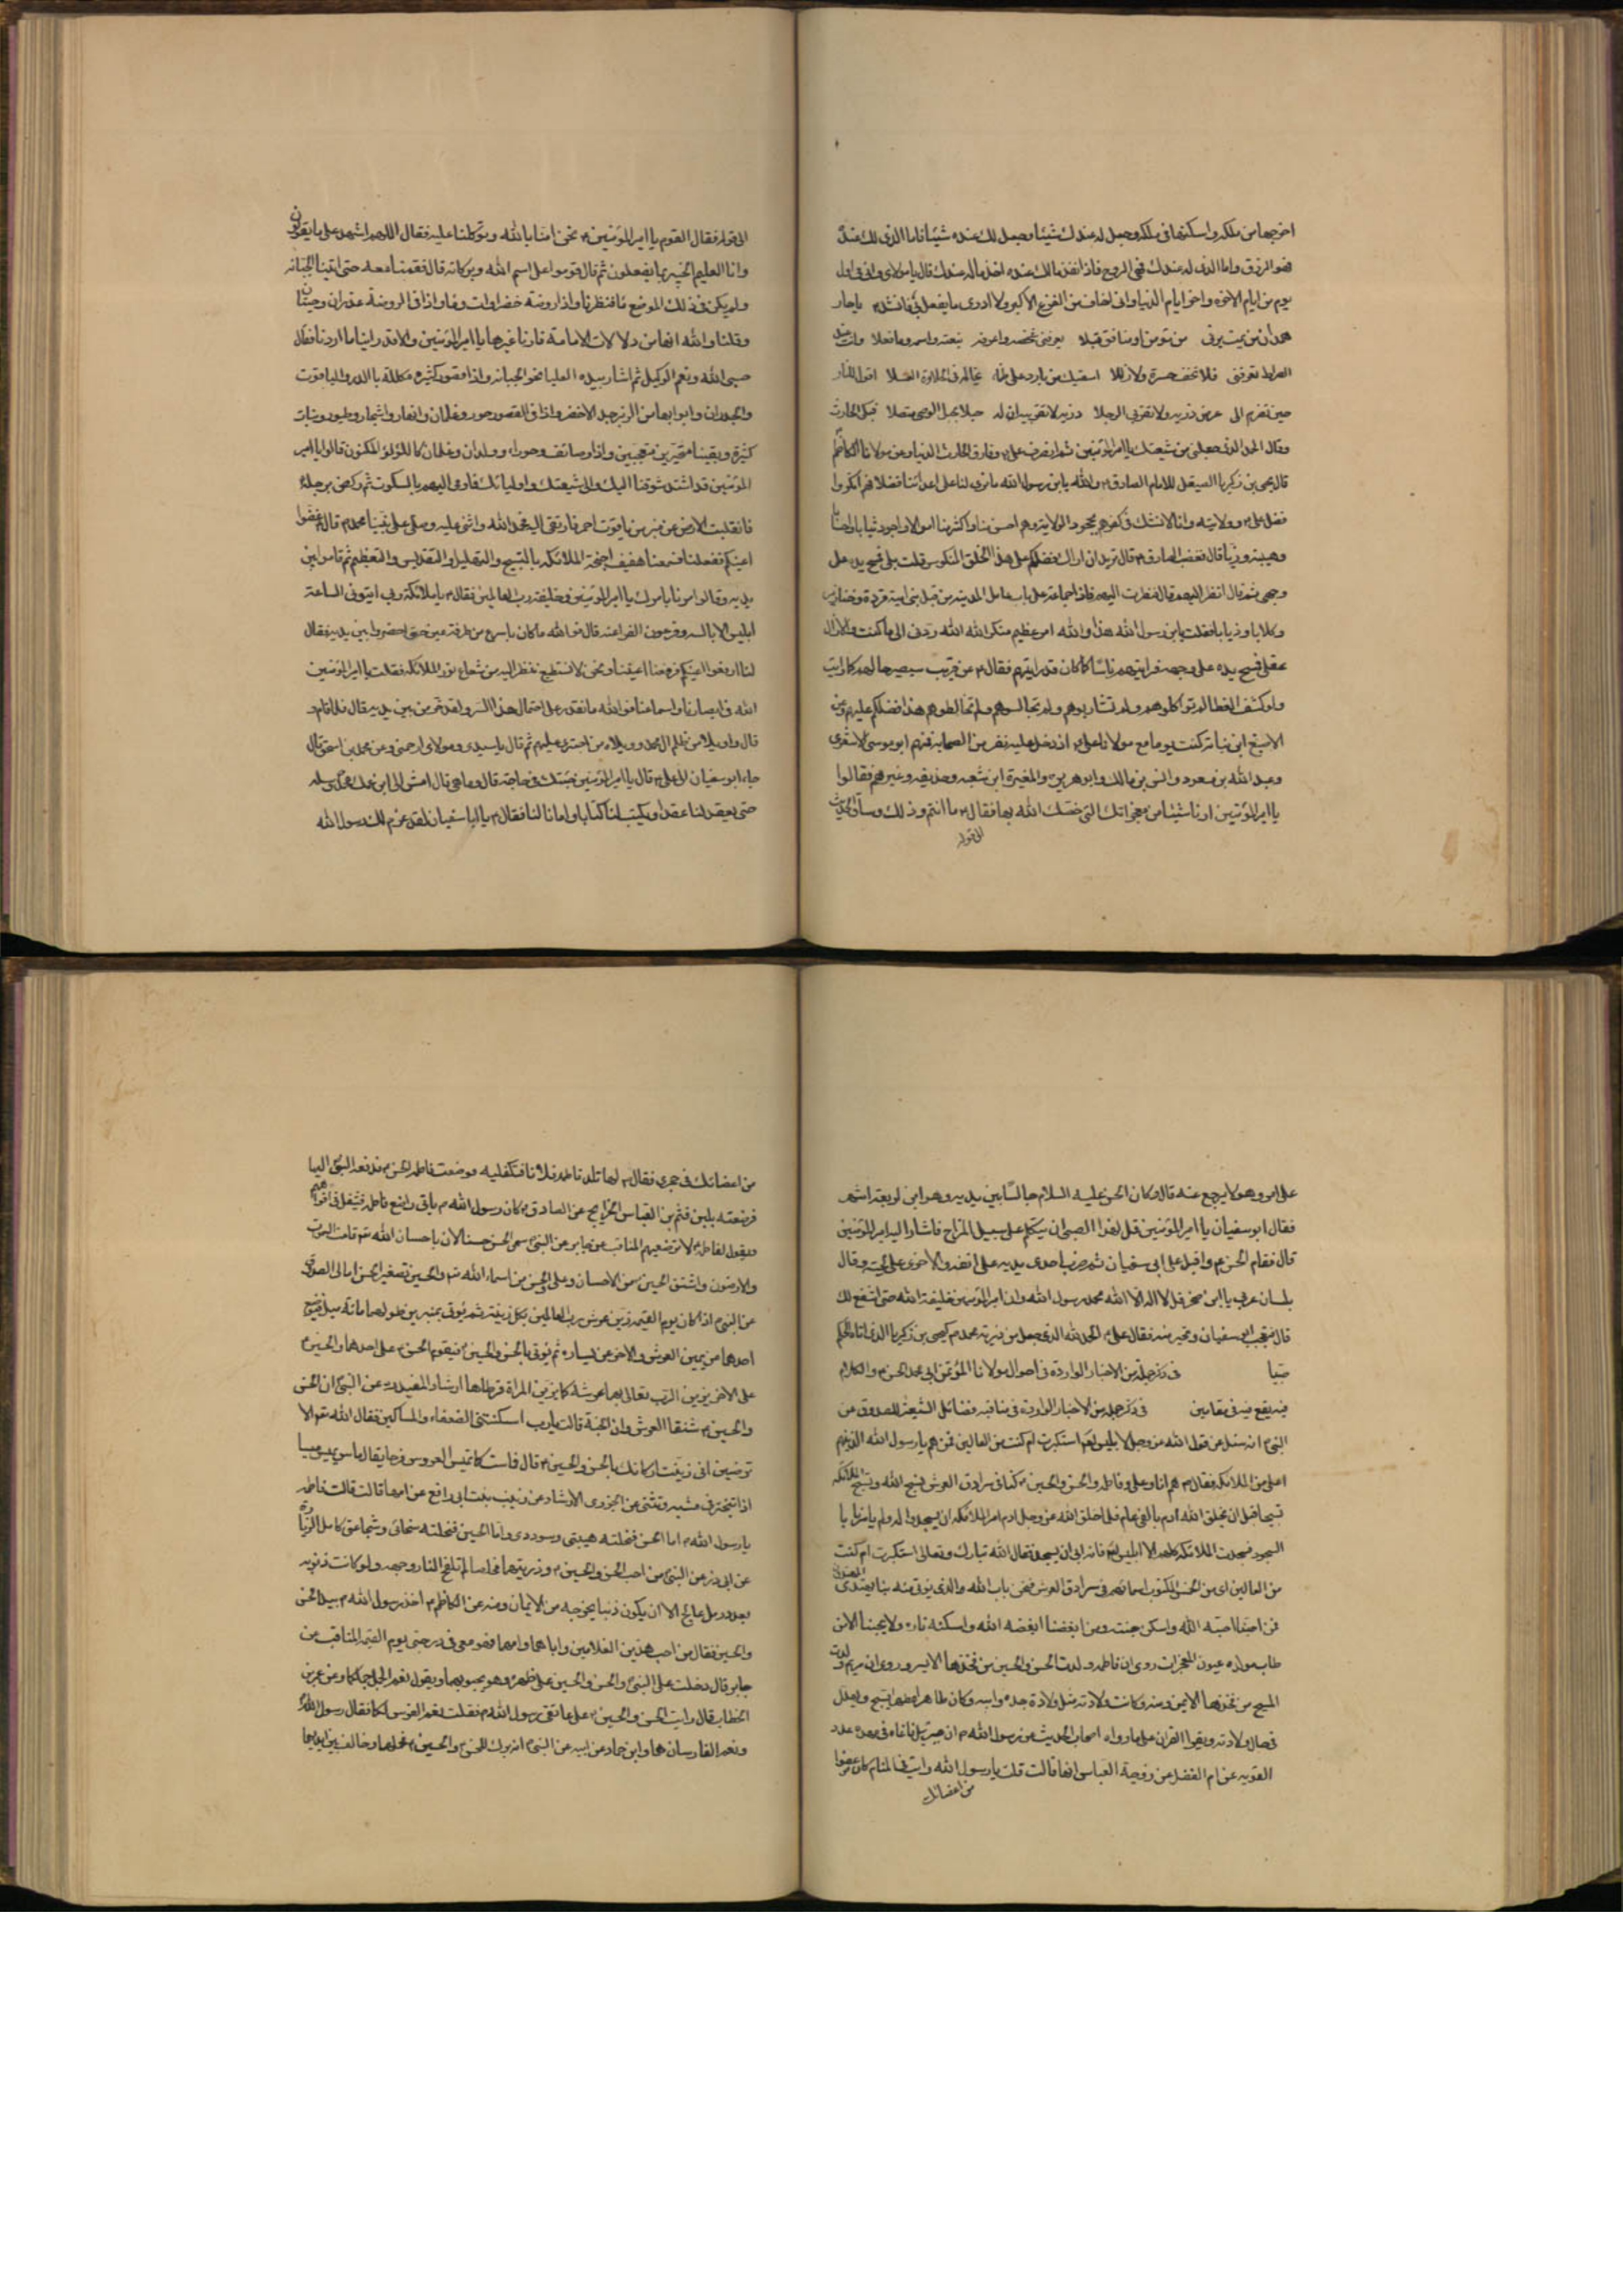 اخرجها من ملكه واسكنها فى ملكه وجعل له عندك شيئا وجعل لك عنده شيئا فاما الذى لك عنده
فهو الرزق واما الذى له عندك فهى الروح فاذا نفذ مالك عنده اخذ ماله عندك قال يا مولاى وانى فى اول
يوم من ايام الاخرة واخر ايام الدنيا وانى لخاف من الفزع الاكبر ولا ادرى ما يفعل بى فانشد يا حار
همدان من يمت يرنى من مؤمن او منافق قبلا يعرفنى شخصه واعرفه بنعته واسمه وما فعلا وانت عند
الصراط تعرفنى فلا تخف عثرة ولا زللا اسقيك من بارد على ظماء تخاله فى الحلاوة العسلا اقول للنار
حين تعرض الى عرض ذريه ولا تقربى الرجلا ذريه لا تقربيه ان له حبلا بحبل الوصى متصلا فبكى الحارث
وقال الحمد الذى جعلنى من شيعتك يا امير المؤمنين ثم انصرف على وفارق الحارث الدنيا وعن مولانا الكاظم
قال يحيى بن زكريا الصيقل للامام الصادق والله يابن رسول الله ما نرى لنا على اعدائنا فضلا فهم انكروا
فضل على وولايته وانا لا نشك فى كفرهم بجحود الولاية وهم احسن منا واكثر منا اموالا واجود ثيابا
وهيبة وزيا قال فغضب الصادق قال تريد ان اراك فضلكم على هذا الخلق المنكوس قلت بلى فمسح يده على
وجهى ثم قال انظر اليهم قال فنظرت اليهم فاذا جماعة على باب عامل المدينة من قبل بنى امية قردة وخنازير
وكلابا وذيابا فقلت يابن رسول الله هذا والله امر عظيم منكر الله الله ردنى الى ما كنت والا زال
عقلى فمسح يده على وجهى فرايتهم ناسا كما كان قد رايتهم فقال عن قريب سيصير حالهم كما رايت
ولو كشف الغطا لم تواكلوهم ولم تشاربوهم ولم تجالسوهم ولم تخالطوهم هذا فضلكم عليهم وعن
الاصبغ ابن نباتة كنت يوما مع مولانا على اذ دخل عليه نفر من الصحابة منهم ابو موسى الاشعرى
وعبد الله بن مسعود وانس بن مالك وابو هريرة والمغيرة ابن شعبه وحذيفه وغيرهم فقالوا
يا امير المؤمنين ارنا شيئا من معجزاتك التى خصك الله بها فقال ما انتم وذلك وساق الحديث
الى قوله
الى قوله فقال القوم يا امير المؤمنين نحن امنا بالله وتوكلنا عليه فقال اللهم اشهد على ما يقولون
وانا العليم الخبير بما يفعلون ثم قال قوموا على اسم الله وبركاته قال فقمنا معه حتى اتينا الجبانه
ولم يكن فى ذلك الموضع ماء فنظرنا واذا روضة خضراء ذات وماء واذا فى الروضة غدران وحيتان
وقلنا والله انها من دلالات الامامة فارنا غيرها يا امير المؤمنين والا قد راينا ما اردنا فقال
حسبى الله ونعم الوكيل ثم اشار بيده العليا نحو الجبانه واذا قصور كثيره مكللة بالدر والياقوت
والجدران وابوابها من الزبرجد الاخضر واذا فى القصور حور وغلمان وانهار واشجار وطيور ونبات
كثيرة وبقينا متحيرين متعجبين واذا وصائف وحوراء وولدان وغلمان كاللؤلؤ المكنون قالوا يا امير
المؤمنين قد اشتد شوقنا اليك والى شيعتك واوليائك فاومى اليهم بالسكوت ثم ركض برجله
فانقلبت الارض عن منبر من ياقوت احمر فارتقى اليه فحمد الله واثنى عليه وصلى على نبينا محمد قال غضوا
اعينكم ففعلنا فسمعنا هفيف اجنحة الملائكة بالتسبيح والتهليل والتقديس والتعظيم ثم قاموا بين
يديه وقالوا مرنا بامرك يا امير المؤمنين وخليفة رب العالمين فقال يا ملائكة ربى ايتونى الساعة
ابليس الابالسه وفرعون الفراعنه قال فو الله ما كان باسرع من طرفة عين حتى احضروا بين يديه فقال
لنا ارفعوا اعينكم فرفعنا اعيننا ونحن لا نستطيع ننظر اليه من شعاع نور الملائكه فقلت يا امير المؤمنين
الله فى ابصارنا واسماعنا فو الله ما نقدر على احتمال هذا السر ولقد ثم من بين يديه قال فلما قام
قال واويلاه من ظلم ال محمد وويلاه من اجترى عليهم ثم قال يا سيدى ومولاى ارحمنى وعن محمد بن اسحق قال
جاء ابو سفيان الى على قال يا امير المؤمنين جئتك فى حاجة قال وما هى قال امش الى ابن عمك محمد وسله
حتى يعقد لنا عقدا ويكتب لنا كتابا وامانا لنا فقال يا ابا سفيان لقد عزم لك رسول الله
على امر وهو لا يرجع عنه قال وكان الحسن عليه السلام جالسا بين يديه وهو ابن اربعة اشهر
فقال ابو سفيان يا امير المؤمنين قل لهذا الصبى ان يتكلم على سبيل المزاح فاشار اليه امير المؤمنين
قال فقام الحسن واقبل على ابى سفيان ثم ضرب احدى يديه على انفه والاخرى على لحيته وقال
بلسان عربى يا ابن صخر قل لا اله الا الله محمد رسول الله وان امير المؤمنين خليفة الله حتى اشفع لك
قال فتعجب ابى سفيان وتحير منه فقال على الحمد لله الذى جعل من ذرية محمد كيحيى بن زكريا الذى اتاه الحكم
صبيا فى ذكر جملة من الاخبار الواردة فى احوال مولانا المؤتمن ابى محمد الحسن والكلام
فيه يقع فيه فى مقامين فى ذكر جملة من الاخبار الواردة فى مناقبه فضائل الشيعة للصدوق عن
النبى انه سئل عن قول الله عز وجل لابليس استكبرت ام كنت من العالين فمن هم يا رسول الله الذين هم
اعلى من الملائكة فقال هم انا وعلى وفاطمه والحسن والحسين كنا فى سرادق العرش نسبح الله وتسبح الملائكه
تسبيحنا قبل ان يخلق الله ادم بالفى عام فلما خلق الله عز وجل ادم امر الملائكه ان يسجدوا له ولم يامرنا
السجود فسجدت الملائكه كلهم الا ابليس فانه ابى ان يسجد فقال الله تبارك وتعالى استكبرت ام كنت
من العالين اى من الخمس المكتوب اسمائهم فى سرادق العرش فنحن باب الله والذى يؤتى منه بنا يهتدى المهتدون
فمن احبنا احبه الله واسكن جنته ومن ابغضنا ابغضه الله واسكنه ناره ولا يحبنا الا من
طاب مولده عيون المعجزات روى ان فاطمه ولدت الحسن والحسين من فخذها الايسر وروى ان مريم ولدت
المسيح من فخذها الايمن ومنه وكانت ولادته مثل ولادة جده وابيه وكان طاهرا مطهرا يسبح ويهلل
فى حال ولادته ويقرء القران على ما رواه اصحاب الحديث عن رسول الله ان جبرئيل ناغاه فى مهده عدد
القويه عن ام الفضل عن زوجة العباس انها قالت قلت يا رسول الله رايت فى المنام كان عضوا
من اعضائك
من اعضائك فى حجرى فقال لها تلد فاطمه غلاما فتكفليه فوضعت فاطمه الحسن فدفعه النبى اليها
فرضعته بلبن قثم بن العباس الخرايج عن الصادق كان رسول الله ياتى مراضع فاطمه فيتفل فى افواههم
ويقول لفاطمه لا ترضعيهم المناقب عن جابر عن النبى سمى الحسن حسنا لان باحسان الله قامت السموات
والارضون واشتق الحسين من الاحسان وعلى والحسن من اسماء الله والحسين تصغير الحسن امالى الصدوق
عن النبى اذا كان يوم القيمه زين عرش رب العالمين بكل زينة ثم يؤتى بمنبرين طولهما مائة ميل فيوضع
احدهما من يمين العرش والاخر عن يساره ثم يؤتى بالحسن والحسين فيقوم الحسن على احدهما والحسين
على الاخر يزين الرب تعالى بهما عرشه كما يزين المراة قرطاها ارشاد المفيد عن النبى ان الحسن
والحسين شنفا العرش وان الجنة قالت يا رب اسكنتنى الضعفاء والمساكين فقال الله الا
ترضين انى زينت اركانك بالحسن والحسين قال فماست كما تميس العروس فرحا يقال ماس يميس ميسا
اذا تبختر فى مشيه وتثنى عن الجزرى الارشاد عن زينب بنت ابى رافع عن امها قالت قالت فاطمه
يا رسول الله اما الحسن فنحلته هيبتى وسوددى واما الحسين فنحلته سخائى وشجاعتى كامل الزيارة
عن ابى ذر عن النبى من احب الحسن والحسين وذريتهما مخلصا لم تلفح النار وجهه ولو كانت ذنوبه
بعدد رمل عالج الا ان يكون ذنبا يخرجه من الايمان ومنه عن الكاظم اخذ رسول الله بيد الحسن
والحسين فقال من احب هذين الغلامين واباهما وامهما فهو معى فى درجتى يوم القيمه المناقب عن
جابر قال دخلت على النبى والحسن والحسين على ظهره وهو يحبو بهما ويقول نعم الجمل جملكما وعن عمر بن
الخطاب قال رايت الحسن والحسين على عاتقى رسول الله فقلت نعم الفرس لكما فقال رسول الله
ونعم الفارسان هما وابن حماد عن ابيه عن النبى انه برك للحسن والحسين فحملهما وخالف بين ايديهما